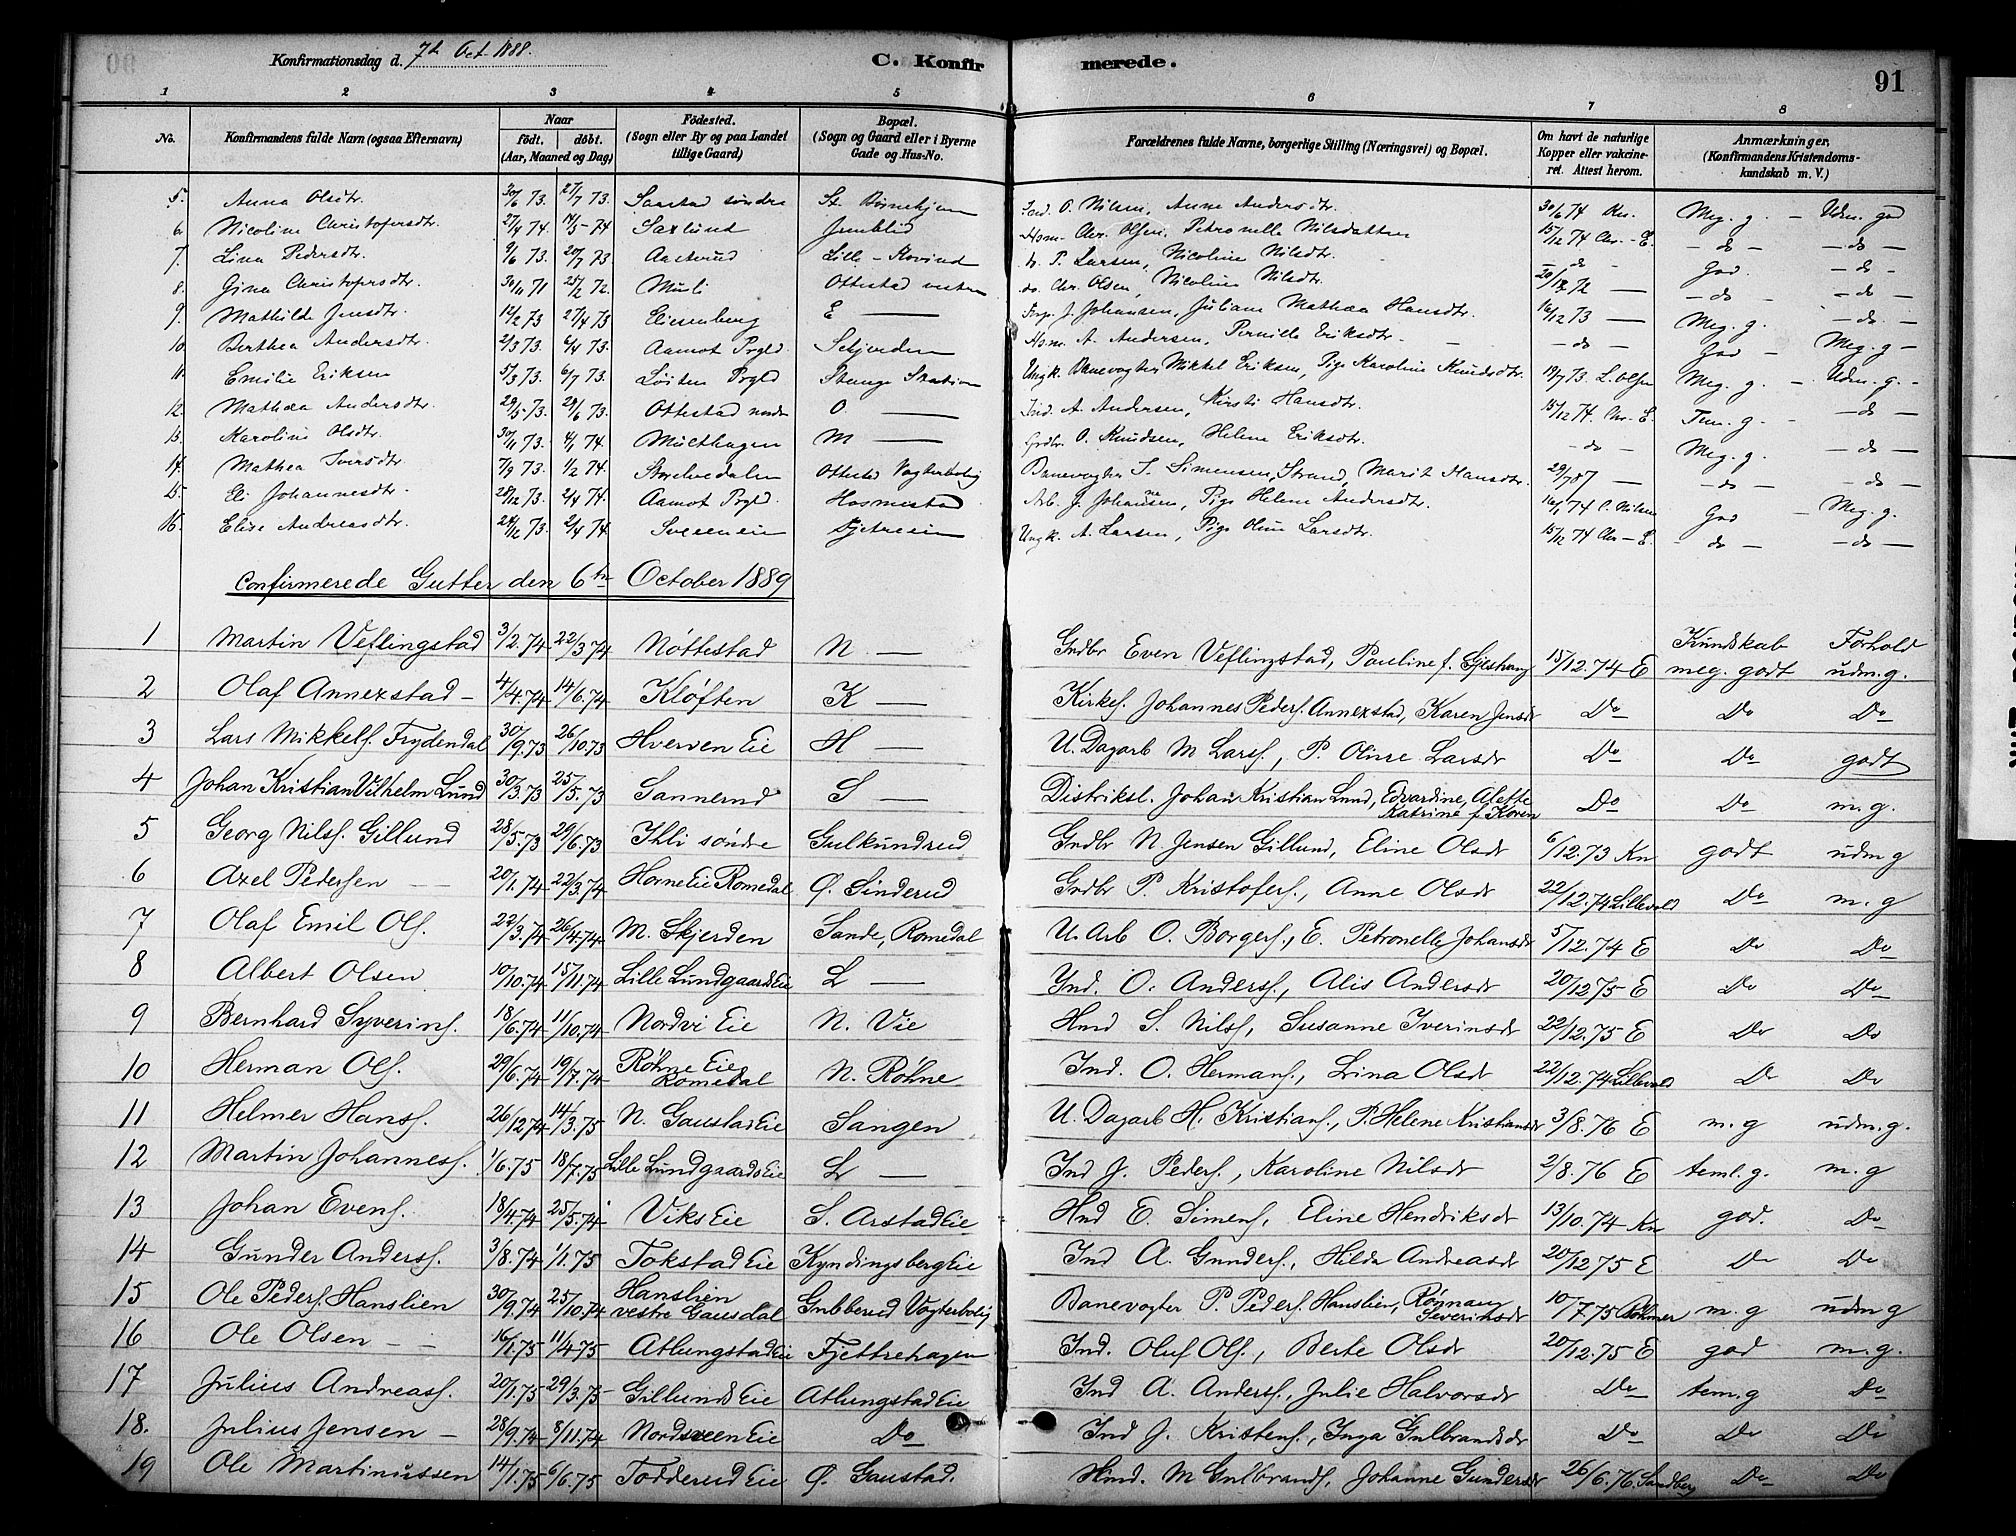 Konfirmationsdag d. 7de Oct. 1888.
C. Konfir merede.
91
1 2 3 4 5 6 7 8
No. Konfirmandens fulde Navn (ogsaa Efternavn) Naar födt. döbt. (Aar, Maaned og Dag) Födested. (Sogn eller By og paa Landet tillige Gaard) Bopæl. (Sogn og Gaard eller i Byerne Gade og Hus-No. Forældrenes fulde Navne, borgerlige Stilling (Næringsvei) og Bopæl. Om havt de naturlige Kopper eller vakcineret. Attest herom. Anmærkninger. (Konfirmandens Kristendomskundskab m. V.)
5. Anna Olsdtr. 30/6 73. 27/7 73. Saastad söndre Ind. O. Nilsen, Anne Andersdtr. 30/6 74 Kn. Meg. g. – Udm. god
6. Nicoline Christofersdtr. 27/4 74. 14/5-74 Saxlund Chr. Olsen, Petronelle Nilsdatter 15/12 74 Chr.-E. – do – – do –
7. Lina Pedersdtr. 9/6 73. 20/7 73 Lille-Rovind do. P. Larsen, Nicoline Nilsdtr. – do – God – do –
8. Gina Christofersdtr. 30/11 71 25/2 72. Muli Ottestad vestre do. Chr. Olsen, Nicoline Nilsdtr. 20/12 72 — – do – – do –
9. Mathilde Jensdtr. 12/2 73 27/4 73 Eliesenberg E — J. Johansen, Juliane Mathea Hansdtr. 16/12 73 — Meg. g. – do –
10. Berthea Andersdtr. 2/3 73. 6/4 73. Aamot Prgld. Skjerden Hsm. A. Andersen, Pernille Eriksdtr. – do – God – Meg. g –
11. Emilie Eriksen 5/3 73. 6/7 73. Löiten Prgld Stange Station Ungk. Banevogter Mikkel Eriksen, Pige Karoline Knudsdtr. 19/7 73. L. Olsen Meg. g. – Udm. g. -
12. Mathea Andersdtr. 29/5-73. 29/6 73. Ottestad nordre O — Ind. A. Andersen, Kirsti Hansdtr. 15/12 74 Chr-E. Tem. g. – – do –
13. Karoline Olsdtr. 30/11 73. 4/1 74. Multhagen M — Grdbr. O. Knudsen, Helene Eriksdtr. – do – Meg. g. – do –
14. Mathea Iversdtr. 7/9 73. 1/2 74. Storelvedalen Ottestad Vogterbolig Banevogter I. Simensen, Strand, Marit Hansdtr. 29/7 87 — – do – – do –
15. Eli Johannesdtr. 28/12 73. 2/4 74. Aamot Prgld. Hosmestad Arb. J. Johansen, Pige Helene Andersdtr. 16/1 74 C. Nilsen God – Meg. g.
16. Elise Andreasdtr. 24/12 73. 2/4 74. Sveenseie Ungk. A. Larsen, Pige Oline Larsdtr. 15/12 74 Chr-E. – do – – do –
Confirmerede Gutter den 6te October 1889
Kundskab Forhold
1 Martin Veflingstad 3/2.74 22/3.74 Nöttestad N. — Grdbr Even Veflingstad, Pauline f. Gjestvang 15/12.74 E meg. godt udm. g.
2 Olaf Annexstad – 4/4.74 14/6.74 Klöften K — Kirkes. Johannes Peders. Annexstad, Karen Jensdr Do Do Do
3 Lars Mikkels. Frydendal 30/9.73 26/10.73 Hverven Eie H — U. Dagarb M Larss., P. Oline Larsdr Do Do godt
4 Johan Kristian Vilhelm Lund 30/3.73 25/5.73 Sannerud S — Distriksl. Johan Kristian Lund, Edvardine, Alette Katrine f. Koren Do Do m. g.
5 Georg Nilss. Gillund 28/5.73 29/6.73 Ihli söndre Gulkundrud Grdbr N. Jensen Gillund, Eline Olsdr 6/12.73 Kn godt udm g
6 Axel Pedersen – – 20/1.74 22/3.74 Horne Eie Romedal Ö. Sinderud Grdbr P. Kristofers., Anne Olsdr 22/12.74 Lillevold Do m. g
7 Olaf Emil Ols. 22/3.74 26/4.74 M. Skjerden Sande, Romedal U. Arb O. Borgers., E. Petronelle Johansdr 5/12.74 E Do Do
8 Albert Olsen 10/10.74 15/11.74 Lille Lundgaards Eie L — Ind. O. Anderss., Alis Andersdr 20/12.75 E Do Do
9 Bernhard Syverins. 18/6.74 11/10.74 Nordvi Eie N. Vie Hmd S. Nilss, Susanne Iverinsdr 22/12.75 E Do Do
10 Herman Ols. 29/6.74 19/7.74 Röhne Eie Romedal N. Röhne Ind. O. Hermans., Lina Olsdr 22/12.74 Lillevold Do Do
11 Helmer Hanss. 26/12.74 14/3.75 N. Gaustad Eie Sangen U. Dagarb H. Kristians., P. Helene Kristiansdr 3/8.76 E m. g udm. g.
12 Martin Johanness. 1/6.75 18/7.75 Lille Lundgaards Eie L — Ind J. Peders., Karoline Nilsdr 2/8.76 E teml. g. m. g
13 Johan Evens. 18/4.74 25/5.74 Viks Eie S. Arstad Eie Hmd E. Simens, Eline Hendriksdr 13/10.74 Kn god. Do
14 Gunder Anderss. 3/8.74 1/1.75 Tokstad Eie Kyndingsberg Eie Ind A. Gunders., Hilda Andreasdr 20/12.75 E Do Do
15 Ole Peders. Hanslien 30/9.74 25/10.74 Hanslien vestre Gausdal Gubberud Vogterbolig Banevogter P. Peders. Hanslien, Rönnaug Severinsdr 10/7.75 m. g udm g
16 Ole Olsen – – 16/1.75 11/4.75 Atlungstad Eie Fjettrehagen Ind. Oluf Ols., Berte Olsdr 20/12.75 E god m. g.
17 Julius Andreass. 20/1.75 29/3.75 Gillunds Eie Atlungstad Eie Ind A. Anderss., Julie Halvorsdr Do tem. g Do
18. Julius Jensen – 28/9.74 8/11.74 Nordsveen Eie Do Ind J. Kristens., Inga Gulbrandsdr Do Do Do
19 Ole Martinussen 14/1.75 6/6.75 Todderud Eie Ö. Gaustad. Hmd. M Gulbrands., Johanne Gundersdr 26/6.76. Sandberg Do Do